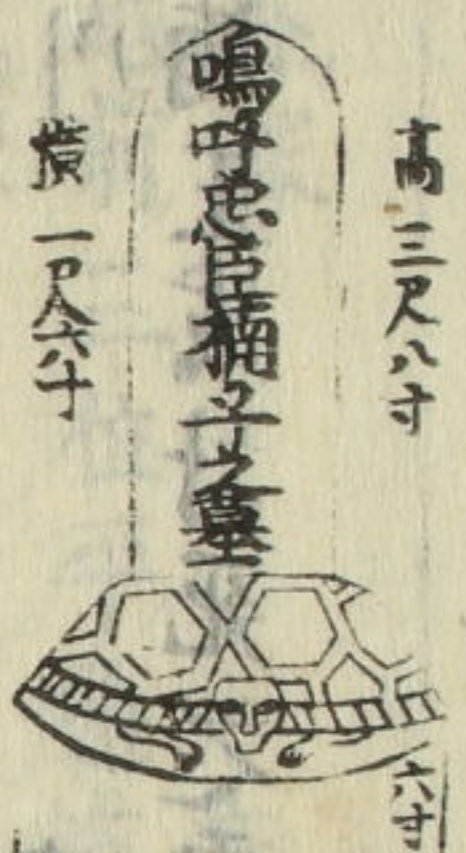 高 三尺八寸
嗚呼忠臣楠子之墓
横 一尺六寸
六寸